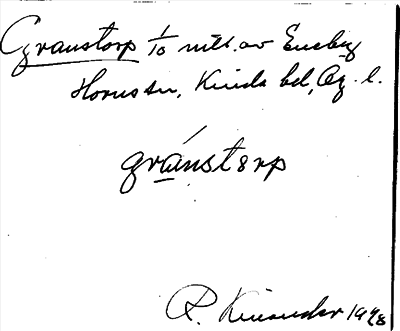 Granstorp 1/10 mtl. av Eneby
Horns sn, Kinda hd, Ög. l.
gránstorp
R. Kinander 1928